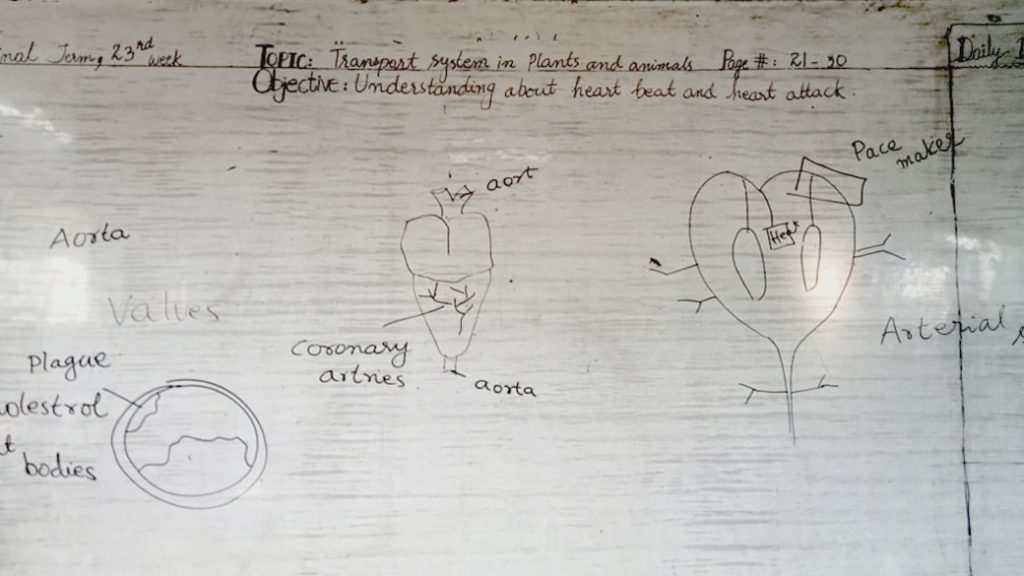 nal Term, 23rd week
TOPIC: Transport system in Plants and animals Page #: 21-30
Daily
Objective: Understanding about heart beat and heart attack.
Pace maker
aort
Aorta
Heart
Valves
Arterial
Coronary
artries
Plague
olestrol
aorta
bodies